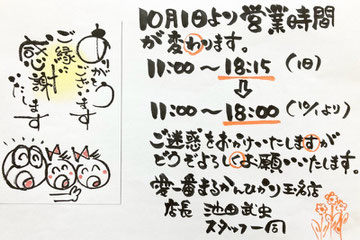 ありがとう
ございます
ご縁に
感謝
します
10月1日より営業時間
が変わります。
11:00〜18:15(旧)
⇩
11:00〜18:00(10/1より)
ご迷惑をおかけいたしますが
どうぞよろしくお願いいたします。
愛一番まるかんひかり玉名店
店長 池田武史
スタッフ一同